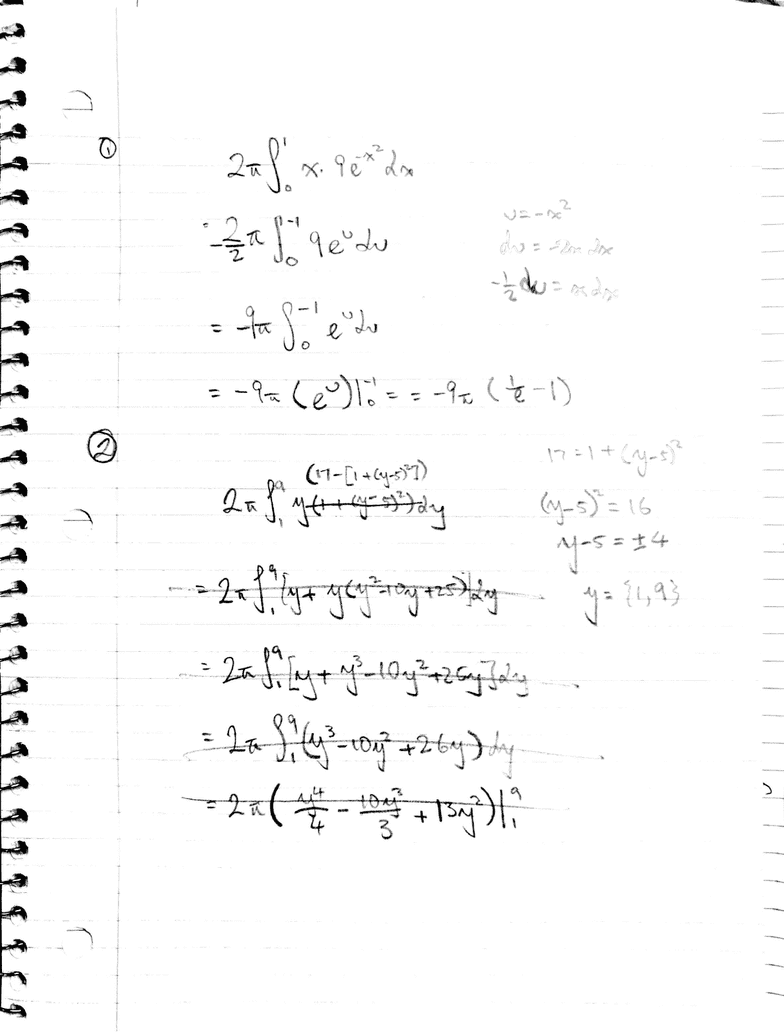 ①
2π∫₀¹ x · 9e^(-x²) dx
u = -x²
-2/2 π ∫₀⁻¹ 9e^u du
du = -2x dx
-1/2 du = x dx
= -9π ∫₀⁻¹ e^u du
= -9π (e^u)|₀⁻¹ = = -9π (1/e - 1)
②
17 = 1 + (y-5)²
(17-[1+(y-5)²])
2π ∫₁⁹ y(1+(y-5)²)dy
(y-5)² = 16
y-5 = ±4
= 2π ∫₁⁹ [y + y(y²-10y+25)]dy
y = {1,9}
= 2π ∫₁⁹ [y + y³-10y²+25y]dy
= 2π ∫₁⁹ (y³-10y²+26y) dy
= 2π ( y⁴/4 - 10y³/3 + 13y²)|₁⁹